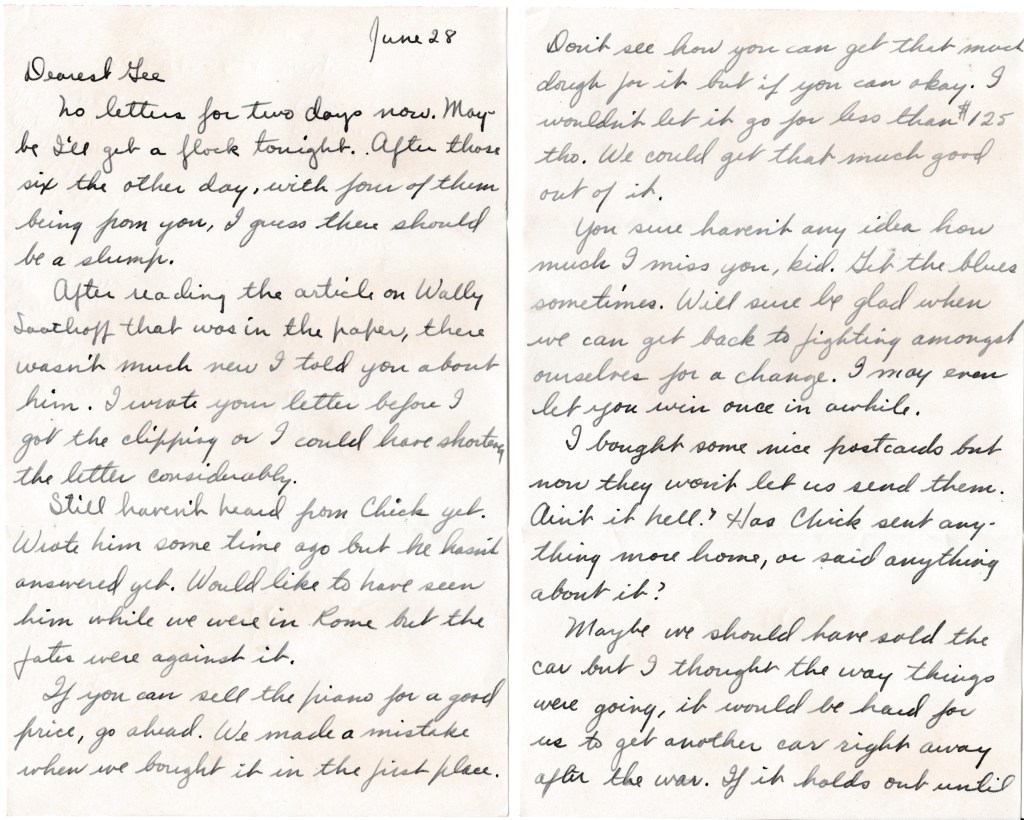 June 28
Dearest Gee
No letters for two days now. May-
be I'll get a flock tonight. After those
six the other day, with four of them
being from you, I guess there should
be a slump.
After reading the article on Wally
Saathoff that was in the paper, there
wasn't much new I told you about
him. I wrote your letter before I
got the clipping or I could have shorten
the letter considerably.
Still haven't heard from Chick yet.
Wrote him some time ago but he hasn't
answered yet. Would like to have seen
him while we were in Rome but the
fates were against it.
If you can sell the piano for a good
price, go ahead. We made a mistake
when we bought it in the first place.
Don't see how you can get that much
dough for it but if you can okay. I
wouldn't let it go for less than $125
tho. We could get that much good
out of it.
You sure haven't any idea how
much I miss you, kid. Git the blues
sometimes. Will sure be glad when
we can get back to fighting amongst
ourselves for a change. I may even
let you win once in awhile.
I bought some nice postcards but
now they won't let us send them.
Ain't it hell? Has Chick sent any-
thing more home, or said anything
about it?
Maybe we should have sold the
car but I thought the way things
were going, it would be hard for
us to get another car right away
after the war. If it holds out until